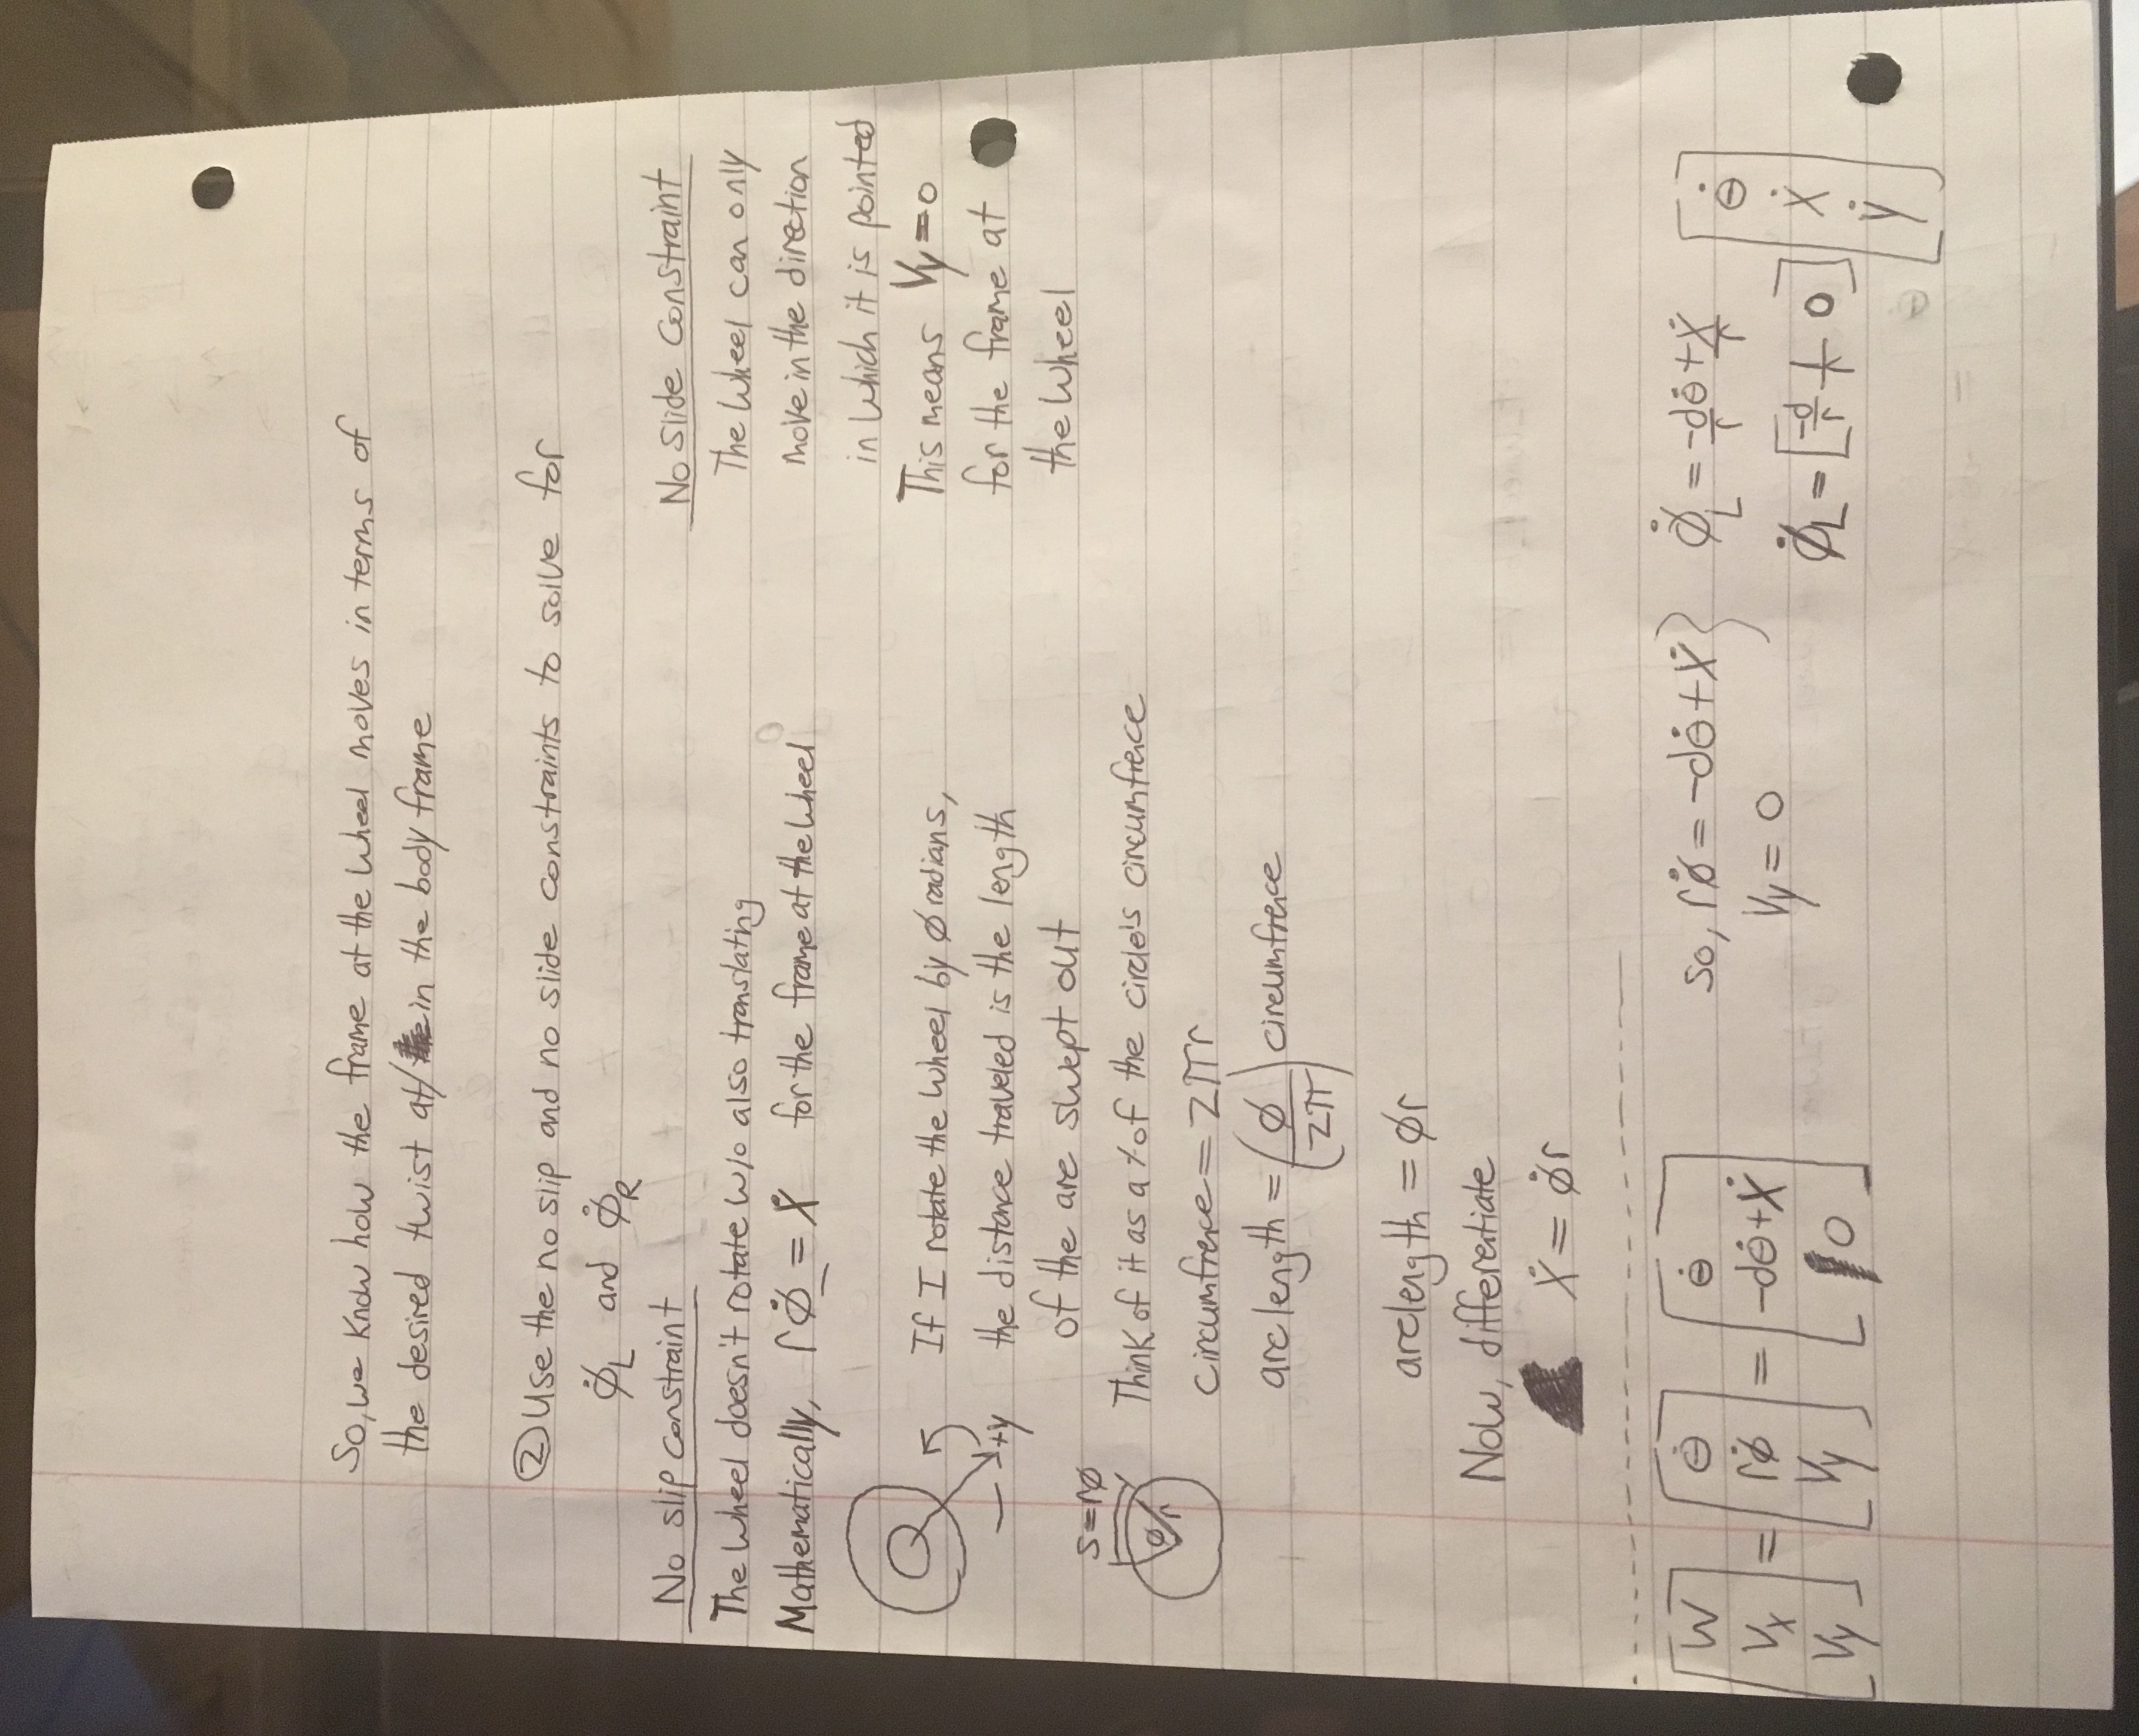 So, we know how the frame at the wheel moves in terms of
the desired twist at/in the body frame
② Use the no slip and no slide constraints to solve for
φ̇_L and φ̇_R
No slip constraint
The wheel doesn't rotate w/o also translating
Mathematically, rφ̇ = ẋ for the frame at the wheel
+y
If I rotate the wheel by φ radians,
the distance traveled is the length
of the arc swept out
s=rφ
φ r
Think of it as a % of the circle's circumfrence
circumfrence = 2πr
arc length = (φ/2π) circumfrence
arclength = φr
Now, differentiate
ẋ = φ̇r
No Slide Constraint
The wheel can only
move in the direction
in which it is pointed
This means Vy=0
for the frame at
the wheel
[W Vx Vy] = [θ̇ rφ̇ Vy] = [θ̇ -dθ̇+ẋ 0]
so, rφ̇ = -dθ̇+ẋ }
Vy = 0
φ̇_L = -d/r θ̇ + ẋ/r
φ̇_L = [-d/r 1/r 0] [θ̇ ẋ ẏ]